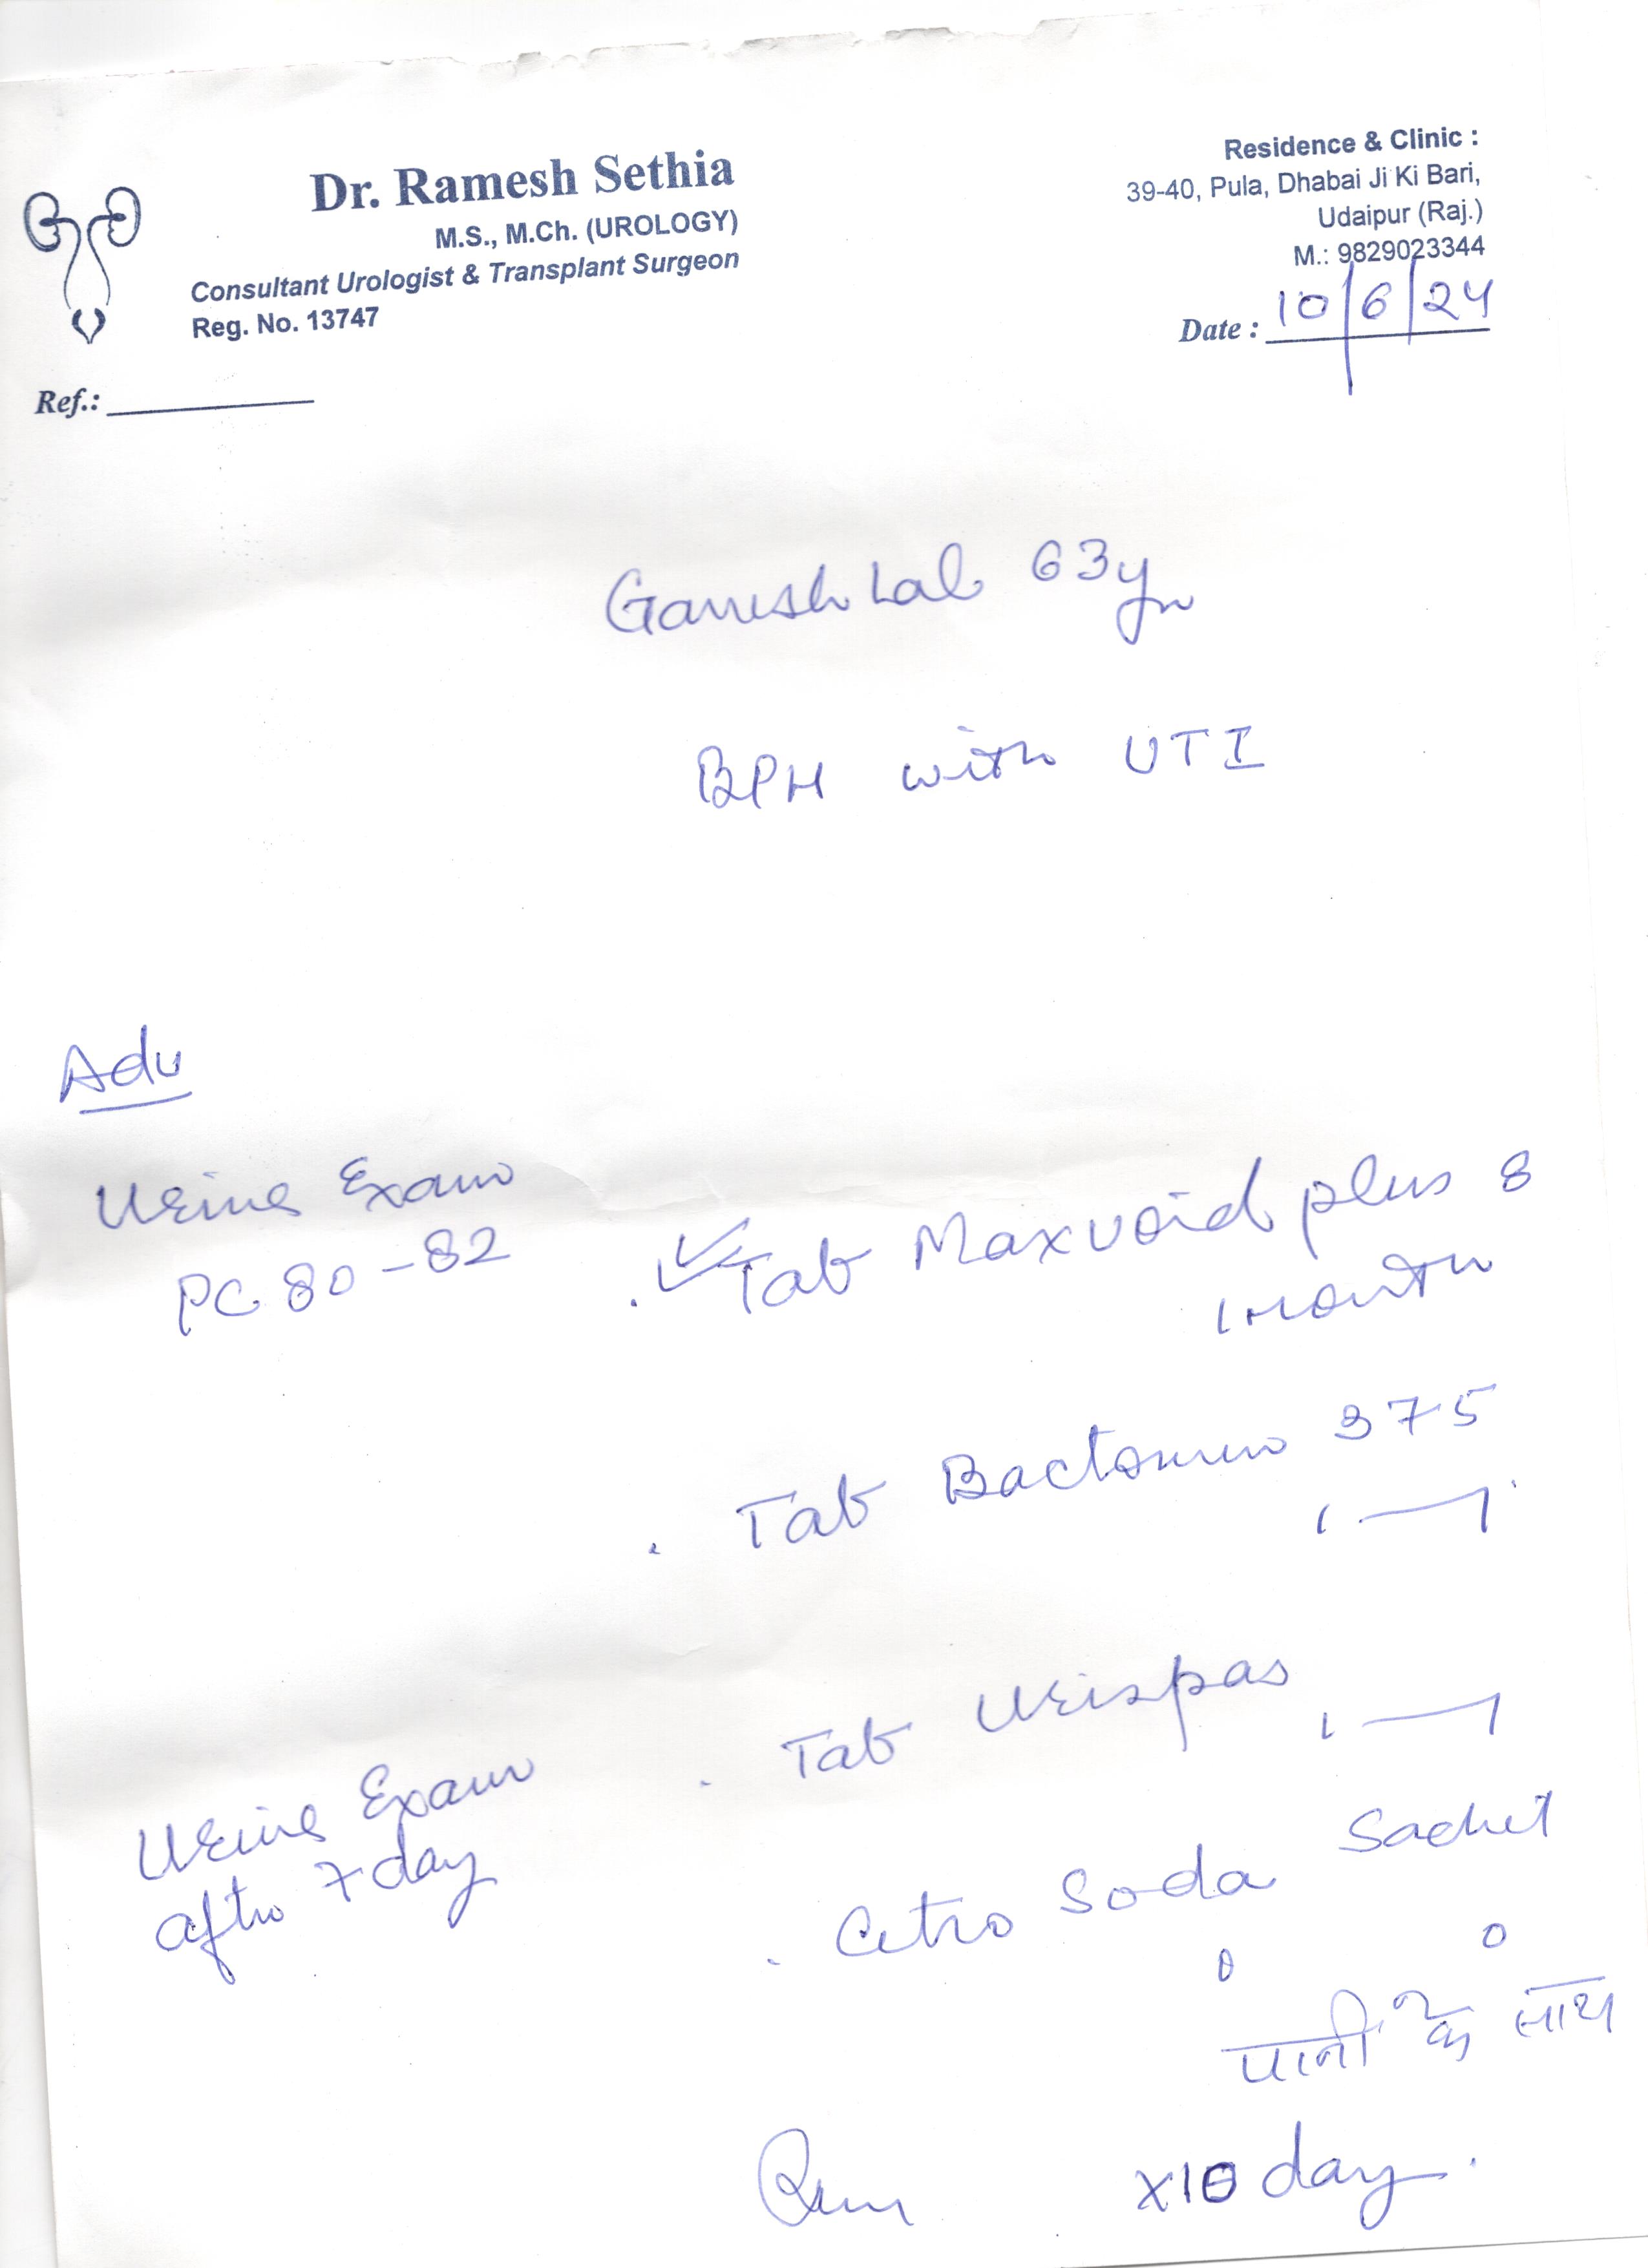 Dr. Ramesh Sethia
M.S., M.Ch. (UROLOGY)
Consultant Urologist & Transplant Surgeon
Reg. No. 13747
Residence & Clinic :
39-40, Pula, Dhabai Ji Ki Bari,
Udaipur (Raj.)
M.: 9829023344
Date : 10/6/24
Ref.:
Ganesh Lal 63yr
BPH with UTI
Adv
Urine Exam
PC 80-82
Tab Maxvoid plus 8
1 month
Tab 375
1 — 1
Tab Urispas
1 — 1
Urine Exam
after 7 day
Citro Soda Sachet
0 0
पानी के साथ
x10 day